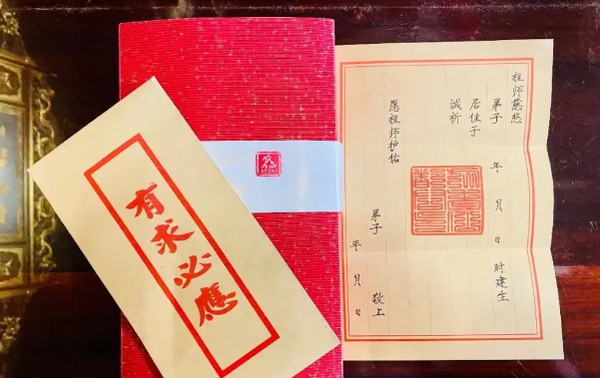 有求必應
祖师慈悲
弟子 年 月 日 时建生
居住于
诚祈
愿祖师护佑
弟子 敬上
年 月 日